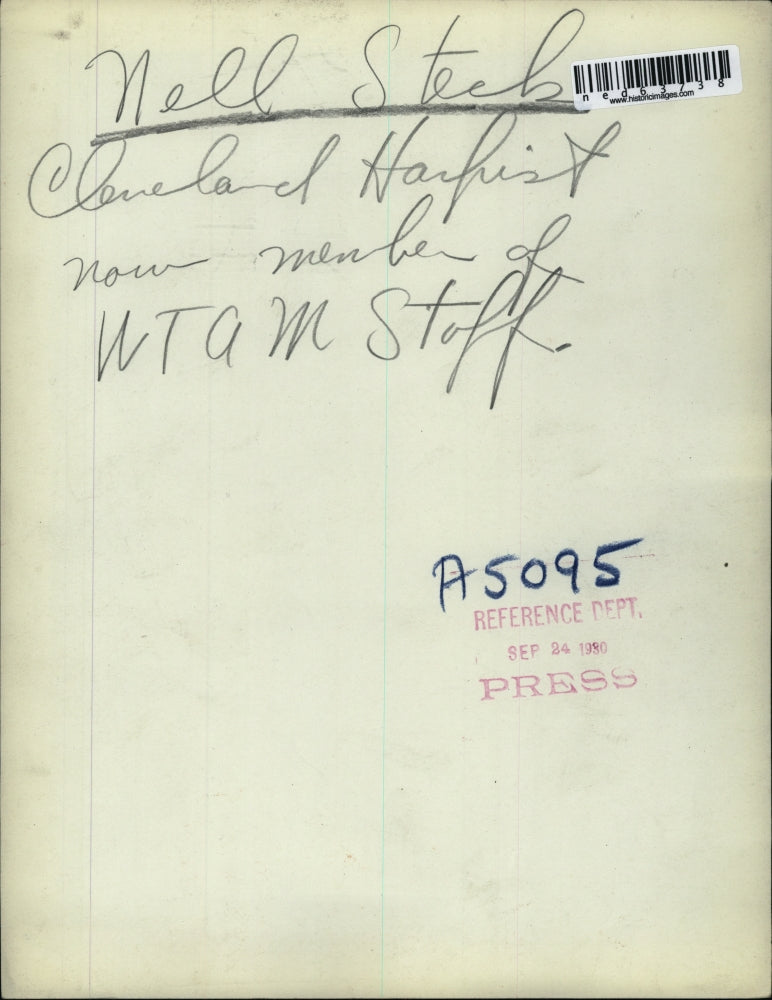 Nell Steck
ned63738
www.historicimages.com
Cleveland Harpist
now member of
WTAM Staff.
A5095
REFERENCE DEPT.
SEP 24 1930
PRESS